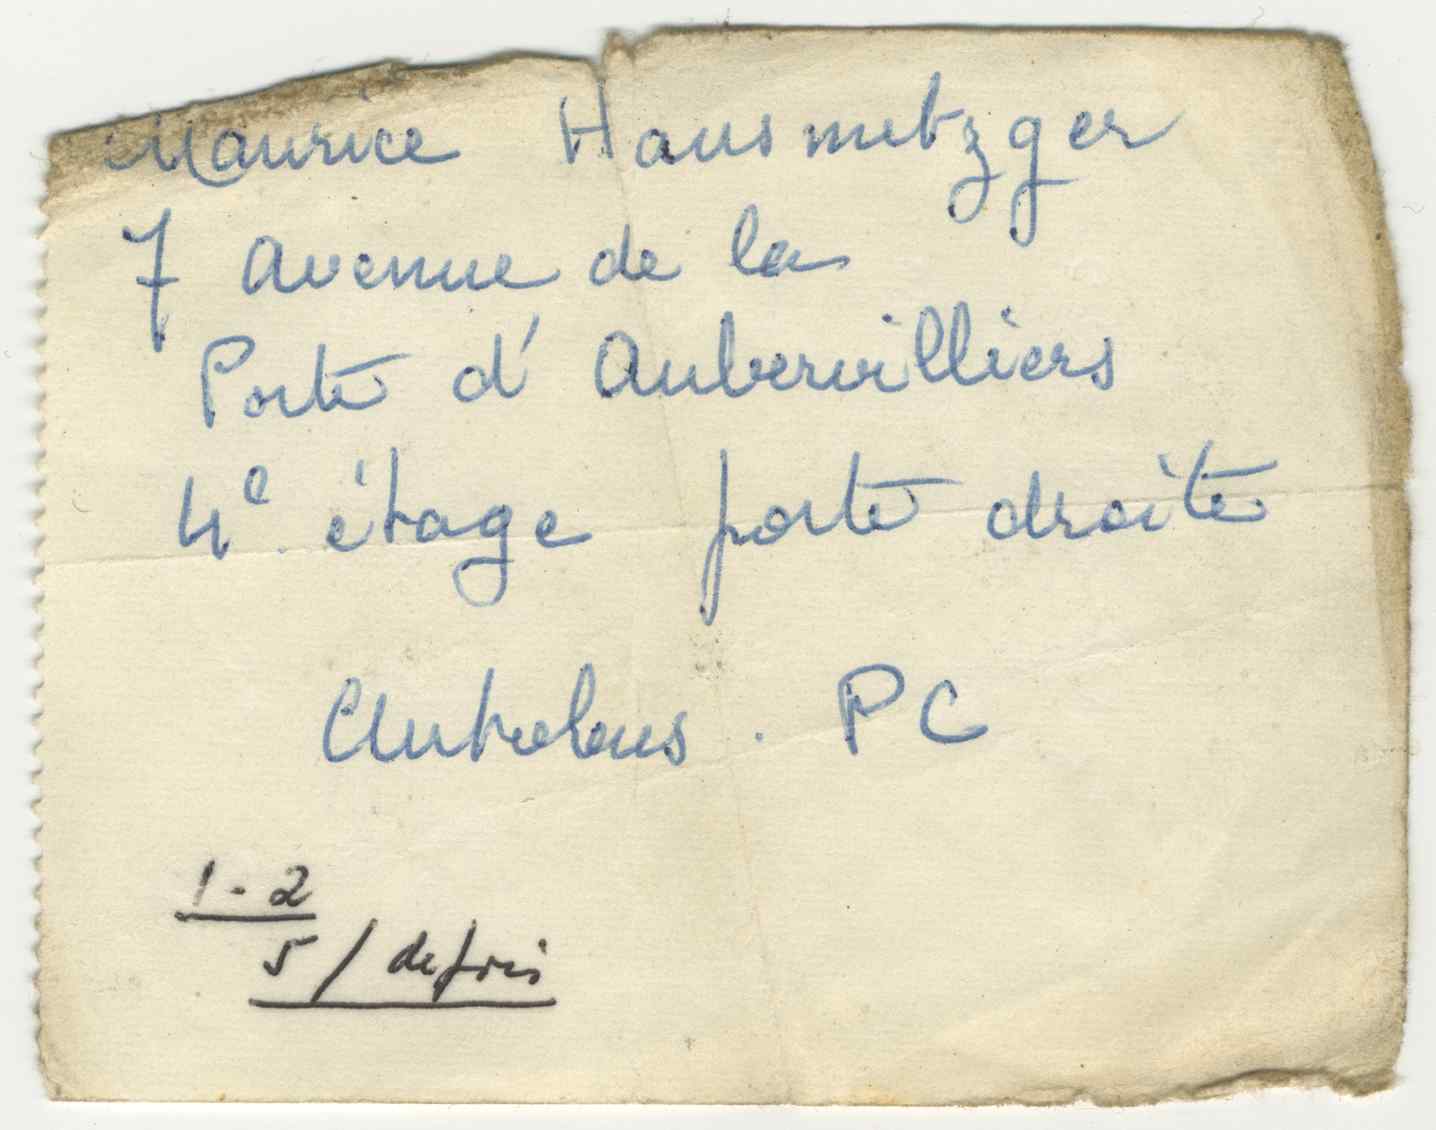 Maurice Hausmetzger
7 avenue de la
Porte d'Aubervilliers
4e étage porte droite
Autobus. PC
1-2
5 /